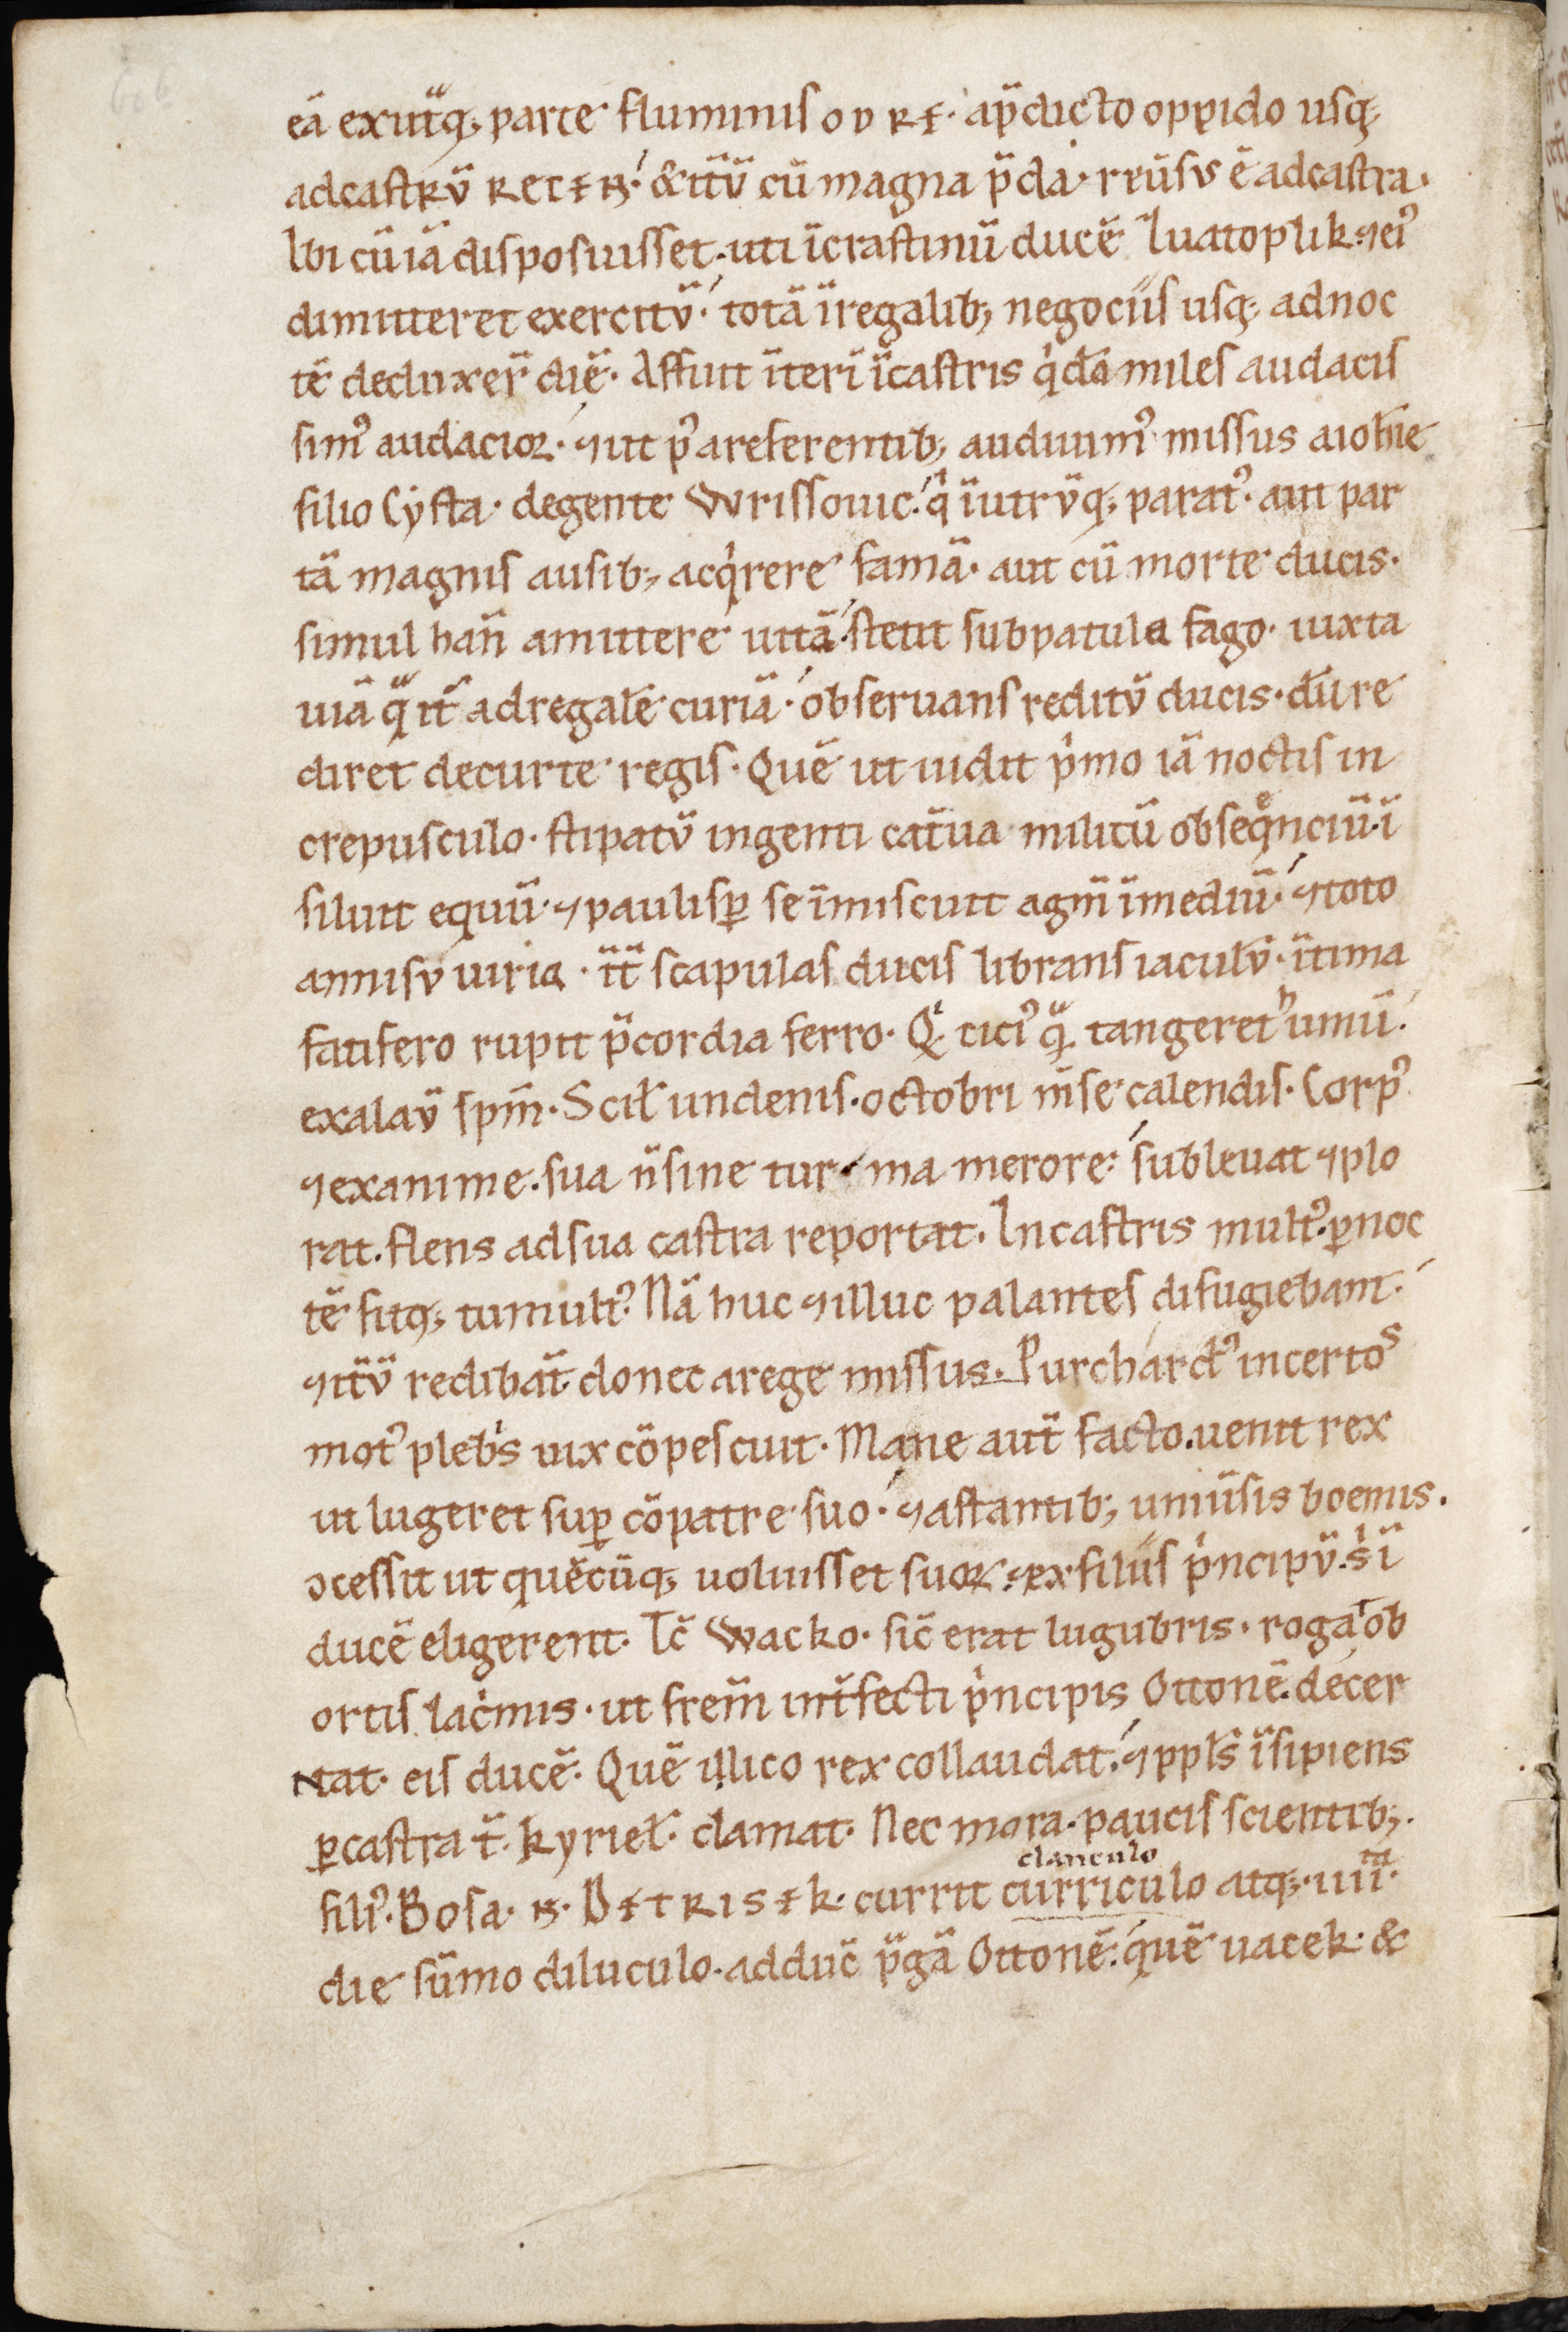 eā exut̄q; parte fluminis ODRE. ap̄dicto oppido usq;
ad castrū RECEN. & it̄ū cū magna p̄da. r̄eūsus ē ad castra.
Ibi cū iā disposuisset. uti īcrastinū ducē Zuatoplik. ⁊ ei᷒
dimitteret exercitū. totā īregalib; negociis usq; ad noc
tē deduxer̄ diē. Affuit īterī īcastris q̇dā miles audacis
sim᷒ audacior. ⁊ ut p᷒ areferentib; audiuim᷒ missus aioh̄e
filio Cysta. degente Wrissouic. qͥ īutrūq; parat᷒. aut par
tā magnis ausib; acq̇rere famā. aut cū morte ducis.
simul han̄ amittere uitā. stetit sub patula fago. iuxta
uiā q̄ it̄ ad regalē curiā. obseruans reditū ducis. dū re
diret decurte regis. Quē ut uidit p̍mo iā noctis in
crepusculo. stipatū ingenti cat̄ua militū obseqͤnciū. ī
siluit equū. ⁊ paulisꝑ se īmiscuit agm̄ īmediū. ⁊ toto
annisu uiriū. īt̄ scapulas ducis librans iaculū. ītima
fatifero rupit p̄cordia ferro. Qͥ cici᷒ q̄ tangeret humū.
exalaū spm̄. Scił undenis. octobri m̄se calendis. Corp᷒
⁊ exanime. sua n̄ sine tur ma merore. subleuat ⁊ plo
rat. flens ad sua castra reportat. In castris mult᷒. ꝑ noc
tē fitq; tumult᷒. Nā huc ⁊ illuc palantes difugiebant.
⁊ it̄ū redibāt. donec arege missus. Purchard᷒ incertos
mot᷒ plebͥs uix cōpescuit. Mane aut̄ facto. uenit rex
ut lugeret suꝑ cōpatre suo. ⁊ astantib; uniūsis boemis.
ↄcessit ut quēcūq; uoluisset suoꝝ. ex filiis p̍ncipū. sͥ ī
ducē eligerent. Tc̄ Wacko. sic̄ erat lugubris. rogat ob
ortis lac̍mis. ut frem̄ int̄fecti p̍ncipis Ottonē. decer
nat. eis ducē. Quē illico rex collaudat. ⁊ ppls̄ īsipiens
ꝑ castra t̄. kyrieł. clamat. Nec mora. paucis scientib;.
fili᷒. Bosa. N. DETRISEK. currit curriculo atq;. iiiiͭᵃ.
clanculo
die sūmo diluculo. adduc̄ p̄gā Ottonē. quē uacek. &